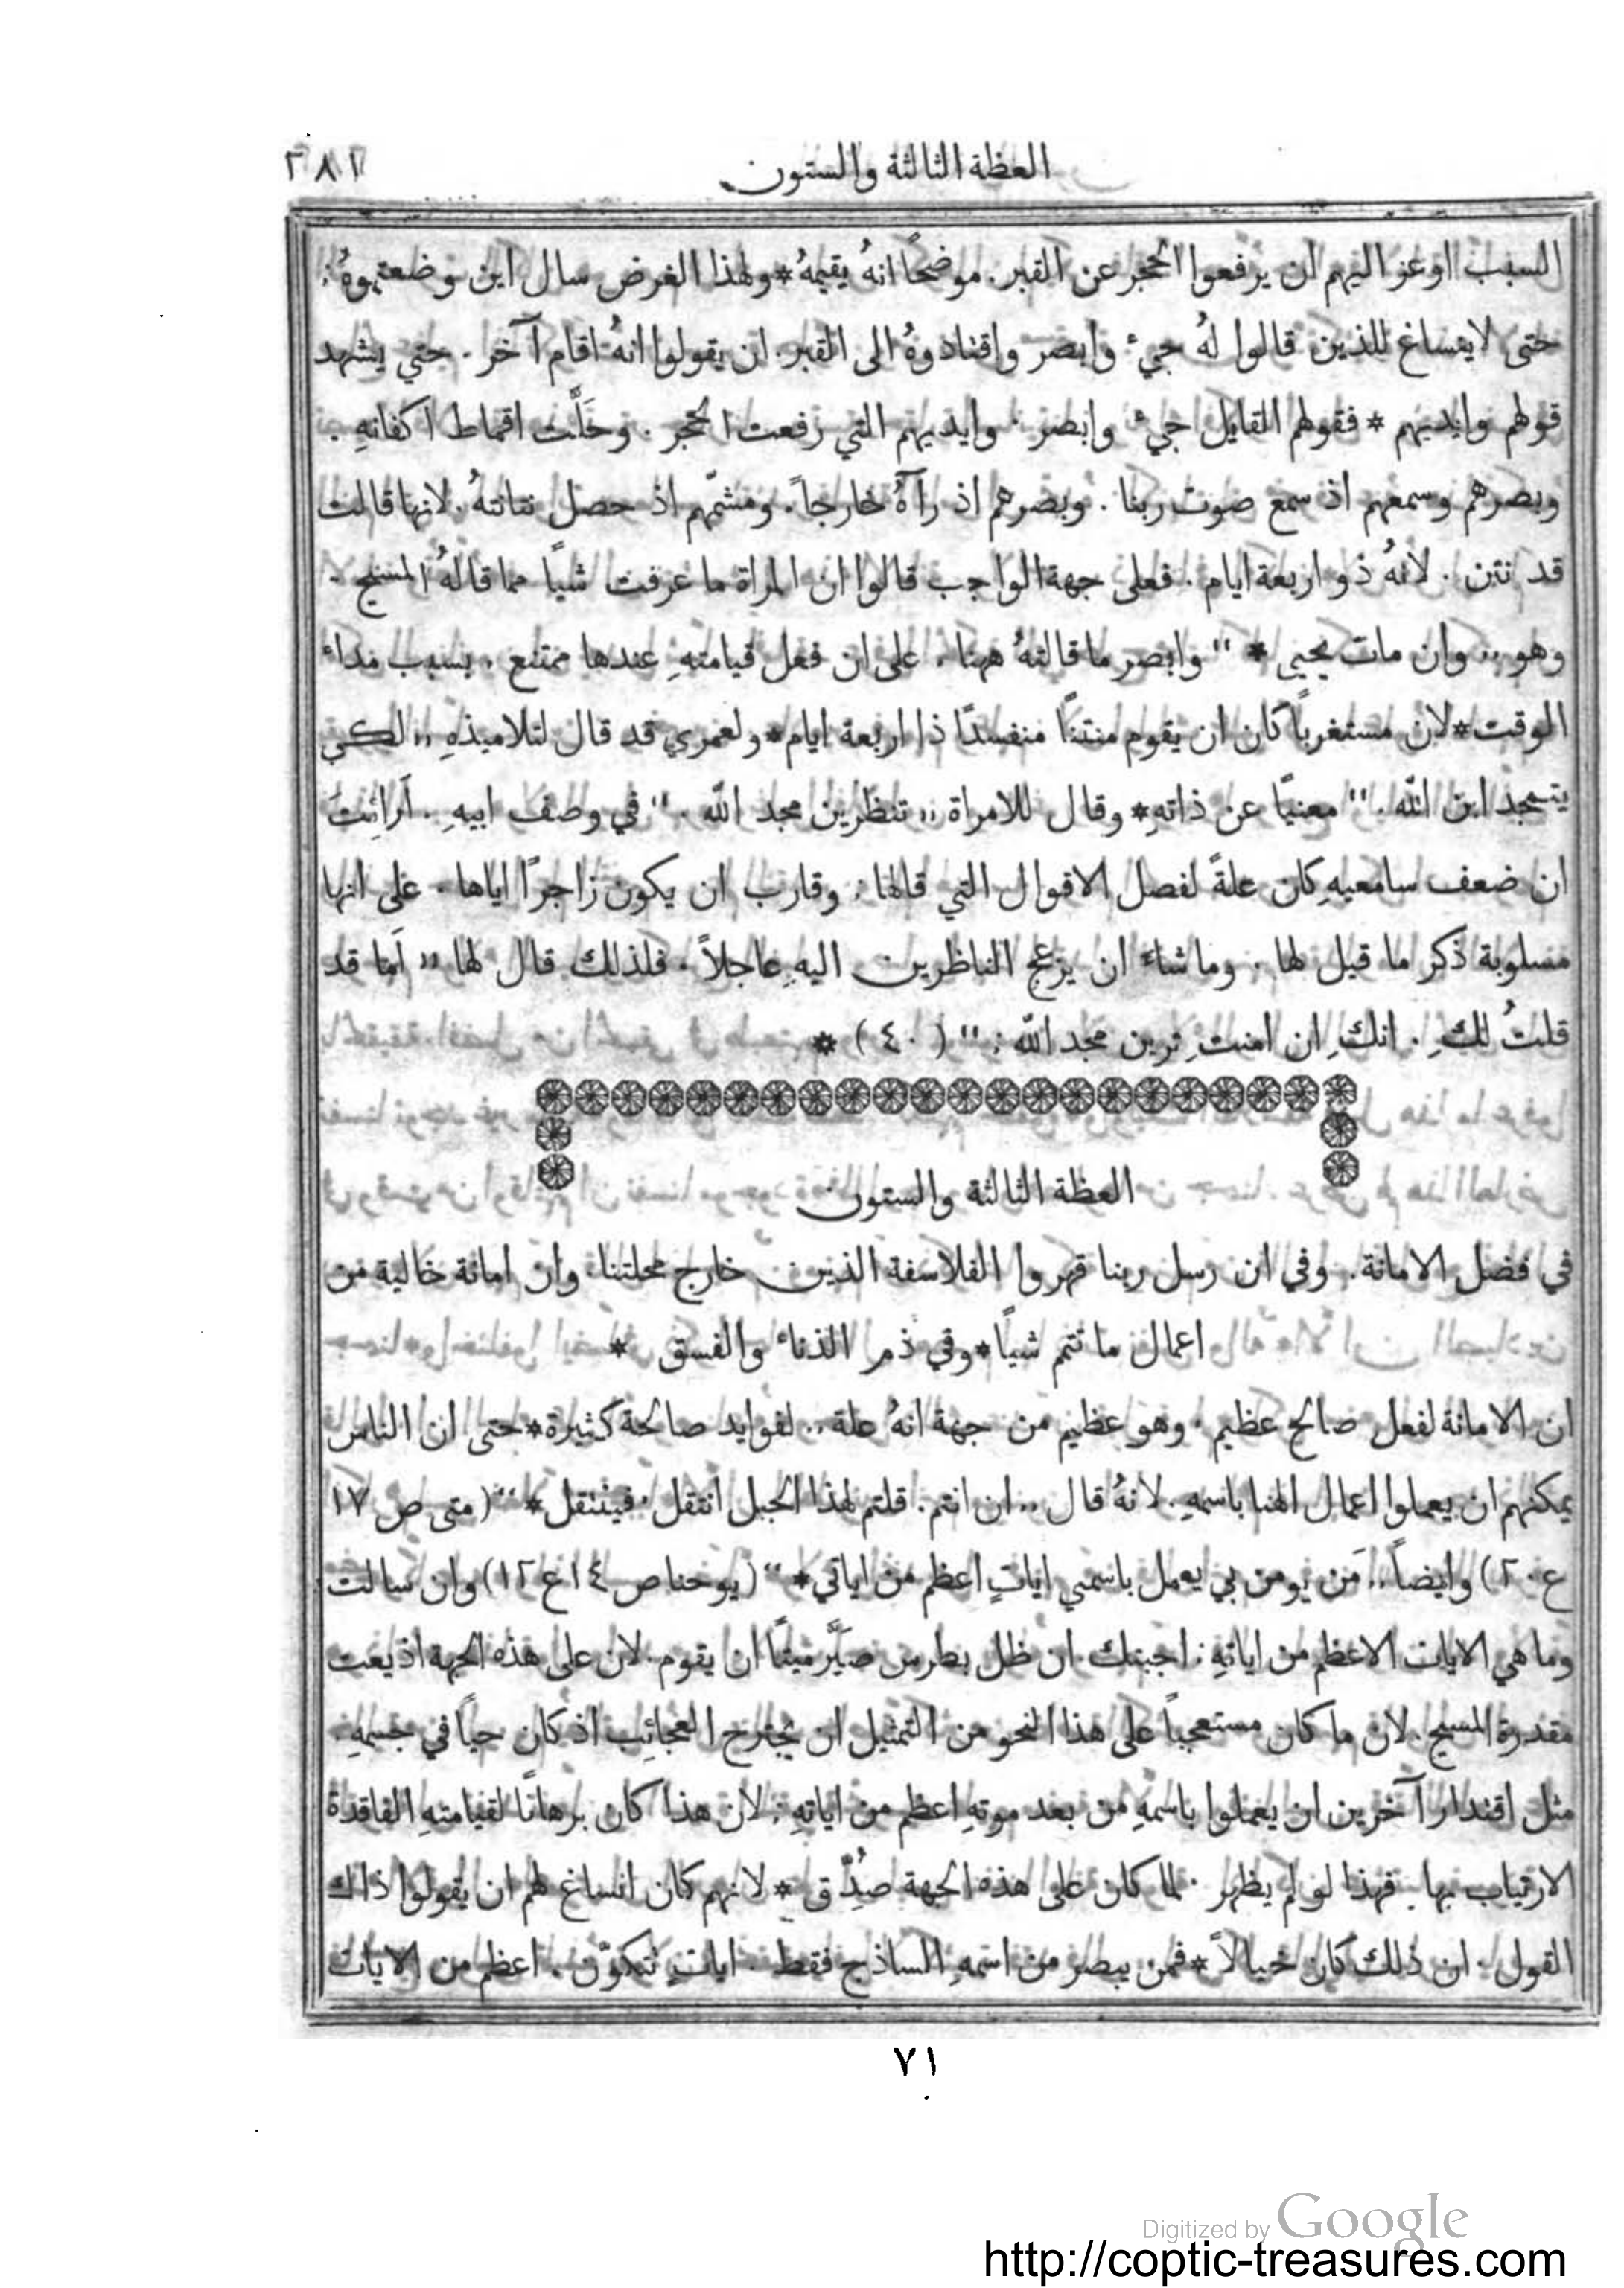 العظة الثالثة والستون ٢٨١
السبب اوعز اليهم ان يرفعوا الحجر عن القبر. موضحًا انهُ يقيمهُ * ولهذا الغرض سال اين وضعتموهُ :
حتى لا ينساغ للذين قالوا لهُ جيء وابصر واقتادوهُ الى القبر. ان يقولوا انهُ اقام آخر. حتي يشهد
قولهم وايديهم * فقولهم القايل جيء وابصر . وايديهم التي رفعت الحجر . وحَلَّت اقماط اكفانهِ .
وبصرهم وسمعهم اذ سمع صوت ربنا . وبصرهم اذ رآهُ خارجاً. ومشمّهم اذ حصل نتانتهُ. لانها قالت
قد نتن . لانهُ ذو اربعة ايام . فعلى جهة الواجب قالوا ان المراة ما عرفت شياً مما قالهُ المسيح .
وهو ,, وان مات يحيي * " وابصر ما قالتهُ ههنا . على ان فعل قيامتهِ عندها ممتنع . بسبب مداء
الوقت * لان مستغرباً كان ان يقوم منتنًا منفسدًا ذا اربعة ايام * ولعمري قد قال لتلاميذهِ ,, لكي
يتمجد ابن الله . " معنيًا عن ذاتهِ * وقال للامراة ,, تنظرين مجد الله . " في وصف ابيهِ . اَرائتَ
ان ضعف سامعيهِ كان علةً لفصل الاقوال التي قالها : وقارب ان يكون زاجراً اياها . على انها
مسلوبة ذكر ما قيل لها . وما شاء ان يزعج الناظرين اليهِ عاجلاً . فلذلك قال لها ,, اَما قد
قلتُ لكِ . انكِ ان امنتِ ترين مجد الله : " ( ٤٠ ) *
العظة الثالثة والستون
في فضل الامانة. وفي ان رسل ربنا قهروا الفلاسفة الذين خارج محلتنا. وان امانة خالية من
اعمال ما تتم شياً * وفي ذم الذناء والفسق *
ان الامانة لفعل صالح عظيم . وهو عظيم من جهة انهُ علة .. لفوايد صالحة كثيرة * حتى ان الناس
يمكنهم ان يعملوا اعمال الهنا باسمهِ . لانهُ قال ,, ان انتم . قلتم لهذا الجبل انتقل . فينتقل * " ( متى ص ١٧
ع ٢٠ ) وايضاً ,, مَن يومن بي يعمل باسمي اياتٍ اعظم من اياتي * " ( يوحنا ص ١٤ ع ١٢ ) وان سالت
وما هي الايات الاعظم من اياتهِ : اجبتك . ان ظل بطرس صَيَّر ميتًا ان يقوم. لان على هذه الجهة اذيعت
مقدرة المسيح . لان ما كان مستعجباً على هذا النحو من التمثيل ان يجترح العجائِب اذ كان حياً في جسمهِ .
مثل اقتدار آخرين ان يعملوا باسمهِ من بعد موتهِ اعظم من اياتهِ : لان هذا كان برهانًا لقيامتهِ الفاقدة
الارتياب بها . فهذا لو لم يظهر . لما كان على هذه الجهة صُدِّق * لانهم كان انساغ لهم ان يقولوا ذلك
القول . ان ذلك كان خيالاً * فمن يبصر من اسمهِ الساذج فقط . اياتٍ تتكوّن . اعظم من الايات
٧١
Digitized by Google
http://coptic-treasures.com